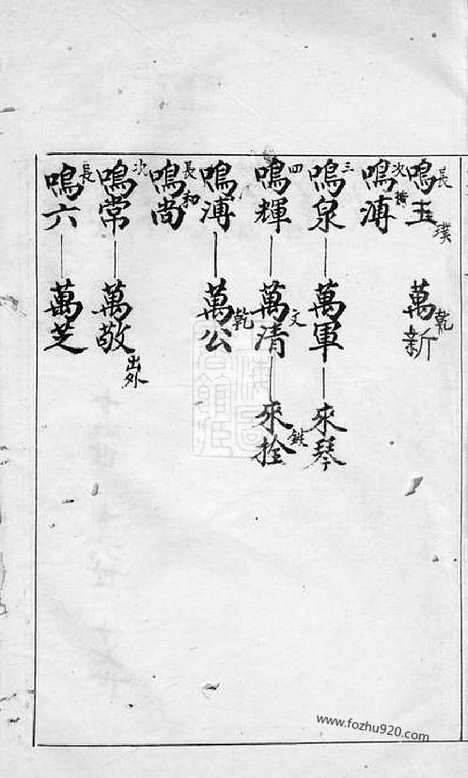 長 鳴玉 璞 萬新 乾
次 鳴溥 璜
三 鳴泉 萬軍 來琴
四 鳴輝 萬清 文 來拴 鎖
鳴溥 萬公 乾
長 鳴尚 和
次 鳴常 萬敬 出外
長 鳴六 萬芝
www.fozhu920.com